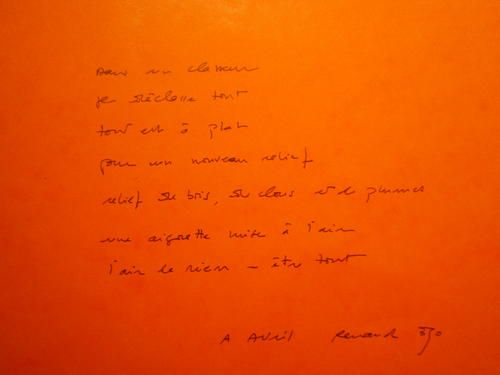 Dans un classeur
je déclasse tout
tout est à plat
pour un nouveau relief
relief de bois, de clous et de plumes
une aigrette mise à l'air
l'air de rien – être tout
A AVRIL Renaud